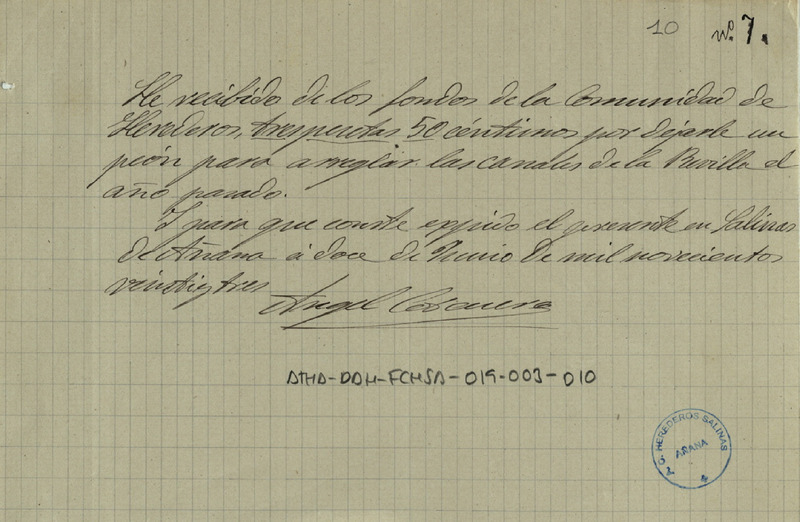 10 nº. 7.
He recibido de los fondos de la Comunidad de
Herederos, tres pesetas 50 céntimos por dejarle un
peón para arreglar las canales de la Revilla el
año pasado.
I para que conste expido el presente en Salinas
de Añana á doce de Junio de mil novecientos
veintiytres
Angel
ATHA-DAH-FCHSA-019-003-010
HEREDEROS SALINAS
AÑANA